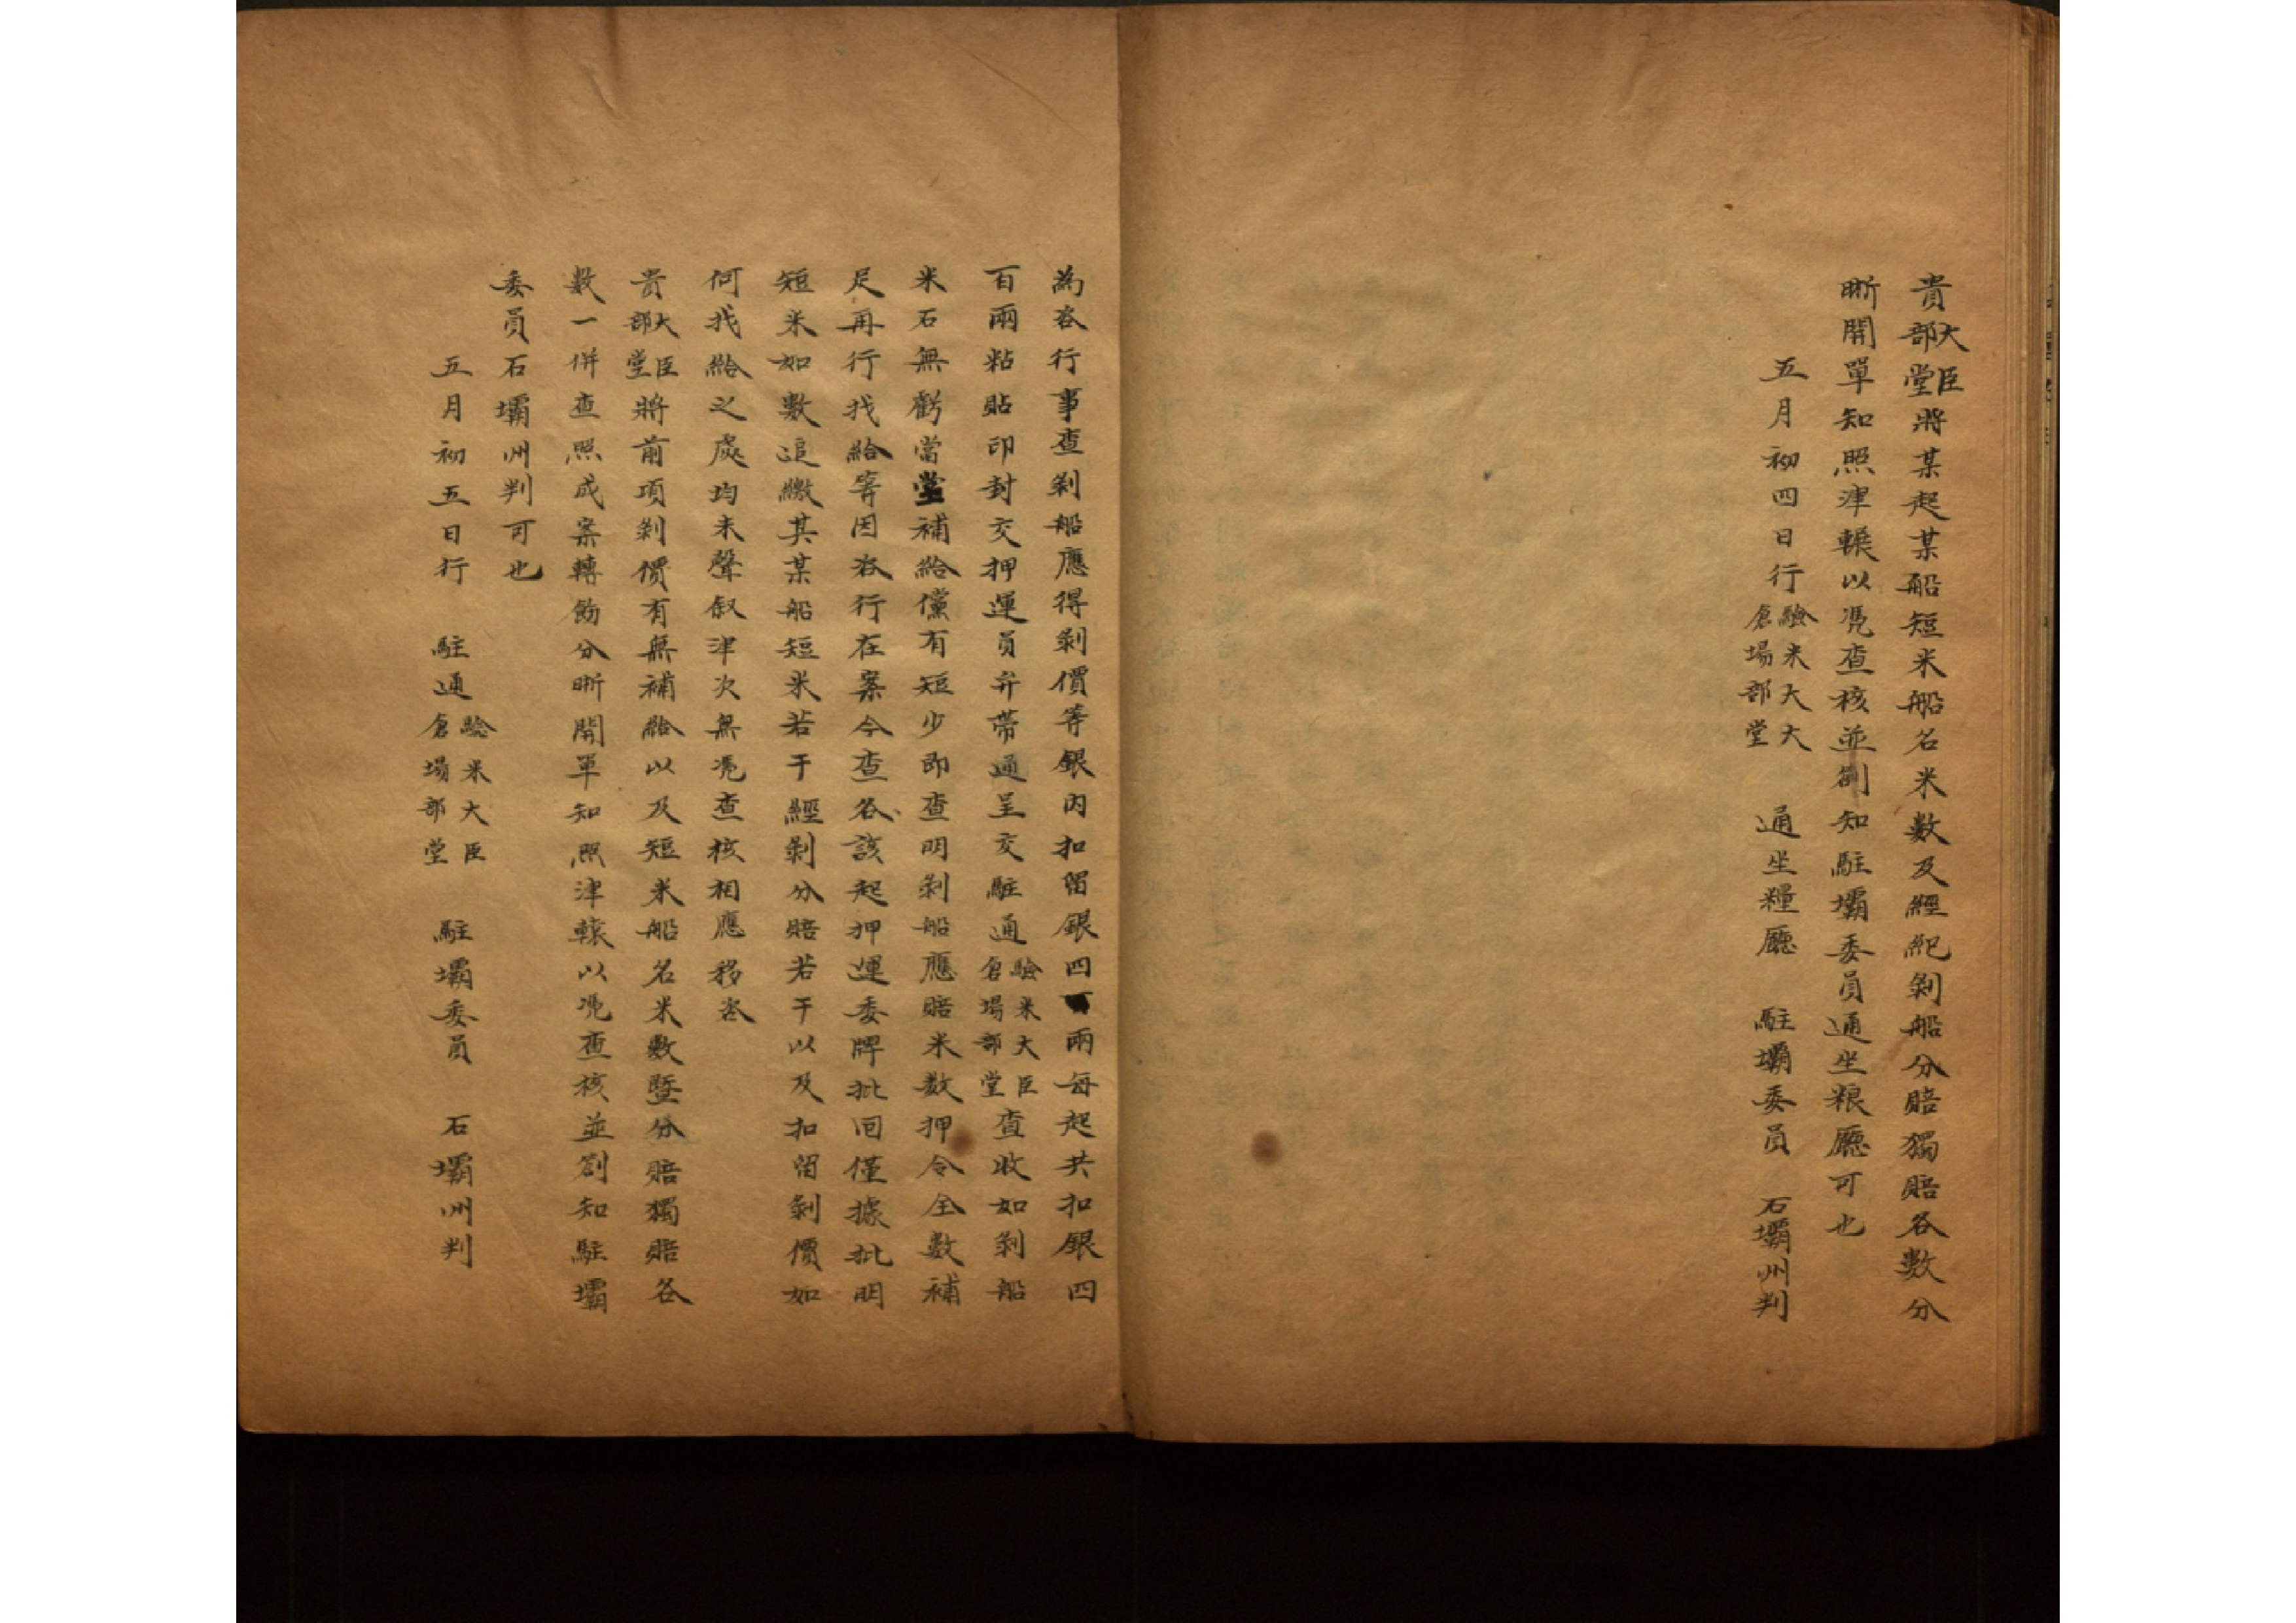 貴大臣部堂將某起某船短米船名米數及經紀剝船分賠獨賠各數分
晣開單知照津轅以凴查核並劄知駐壩委員通坐粮廳可也
五月初四日行驗米大大倉場部堂 通坐糧廳 駐壩委員 石壩州判
為咨行事查剝船應得剝價等銀內扣留銀四兩每起共扣銀四
百兩粘貼印封交押運員弁帶通呈交駐通驗米大臣倉場部堂查收如剝船
米石無虧當堂補給儻有短少即查明剝船應賠米数押令全數補
足再行找給等因咨行在案今查各該起押運委牌批囘僅據批明
短米如數追繳其某船短米若干經剝分賠若干以及扣留剝價如
何找給之處均未聲叙津次無凴查核相應移咨
貴大臣部堂將前項剝價有無補給以及短米船名米數暨分賠獨賠各
數一併查照成案轉飭分晣開單知照津轅以凴查核並劄知駐壩
委員石壩州判可也
五月初五日行 駐通驗米大臣倉場部堂 駐壩委員 石壩州判